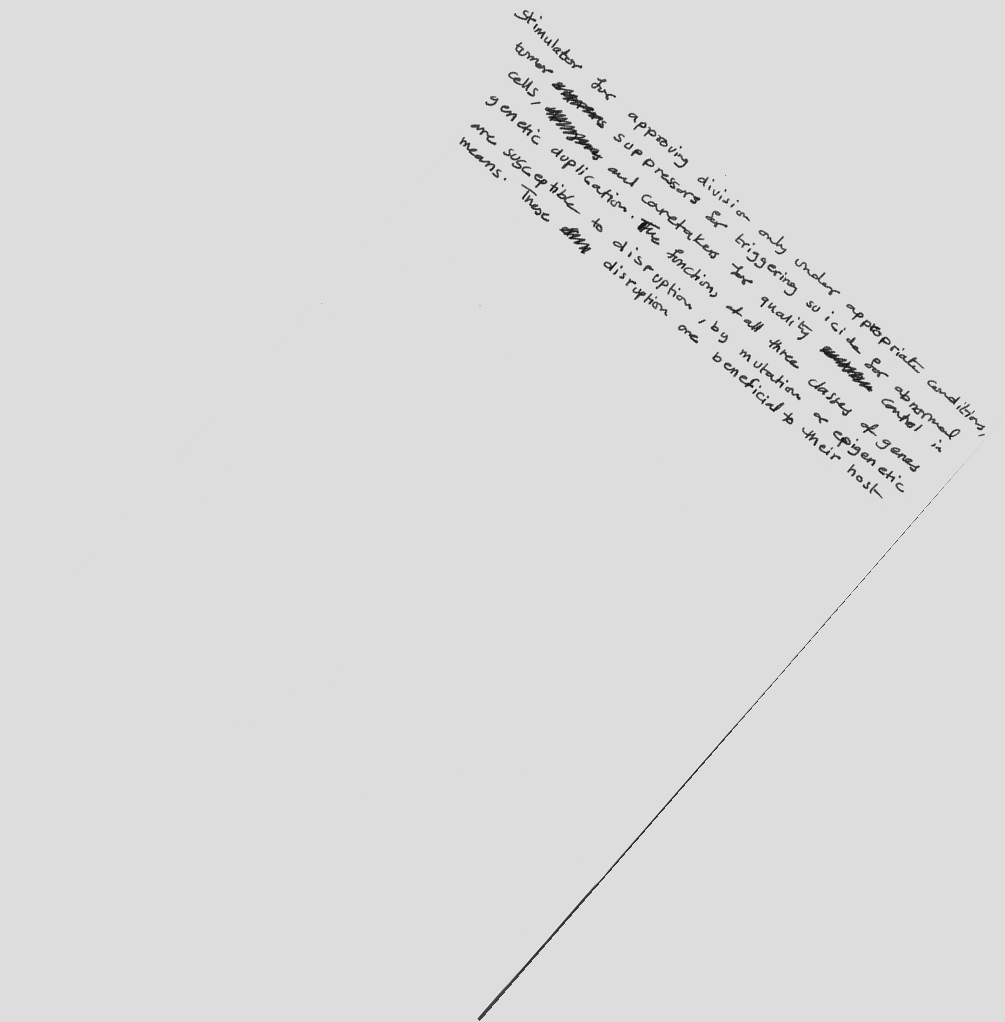 stimulator for approving division only under appropriate conditions,
tumor suppressors for triggering suicide for abnormal
cells, and caretakers for quality control in
genetic duplication. The functions of all three classes of genes
are susceptible to disruption, by mutation or epigenetic
means. These disruption are beneficial to their host